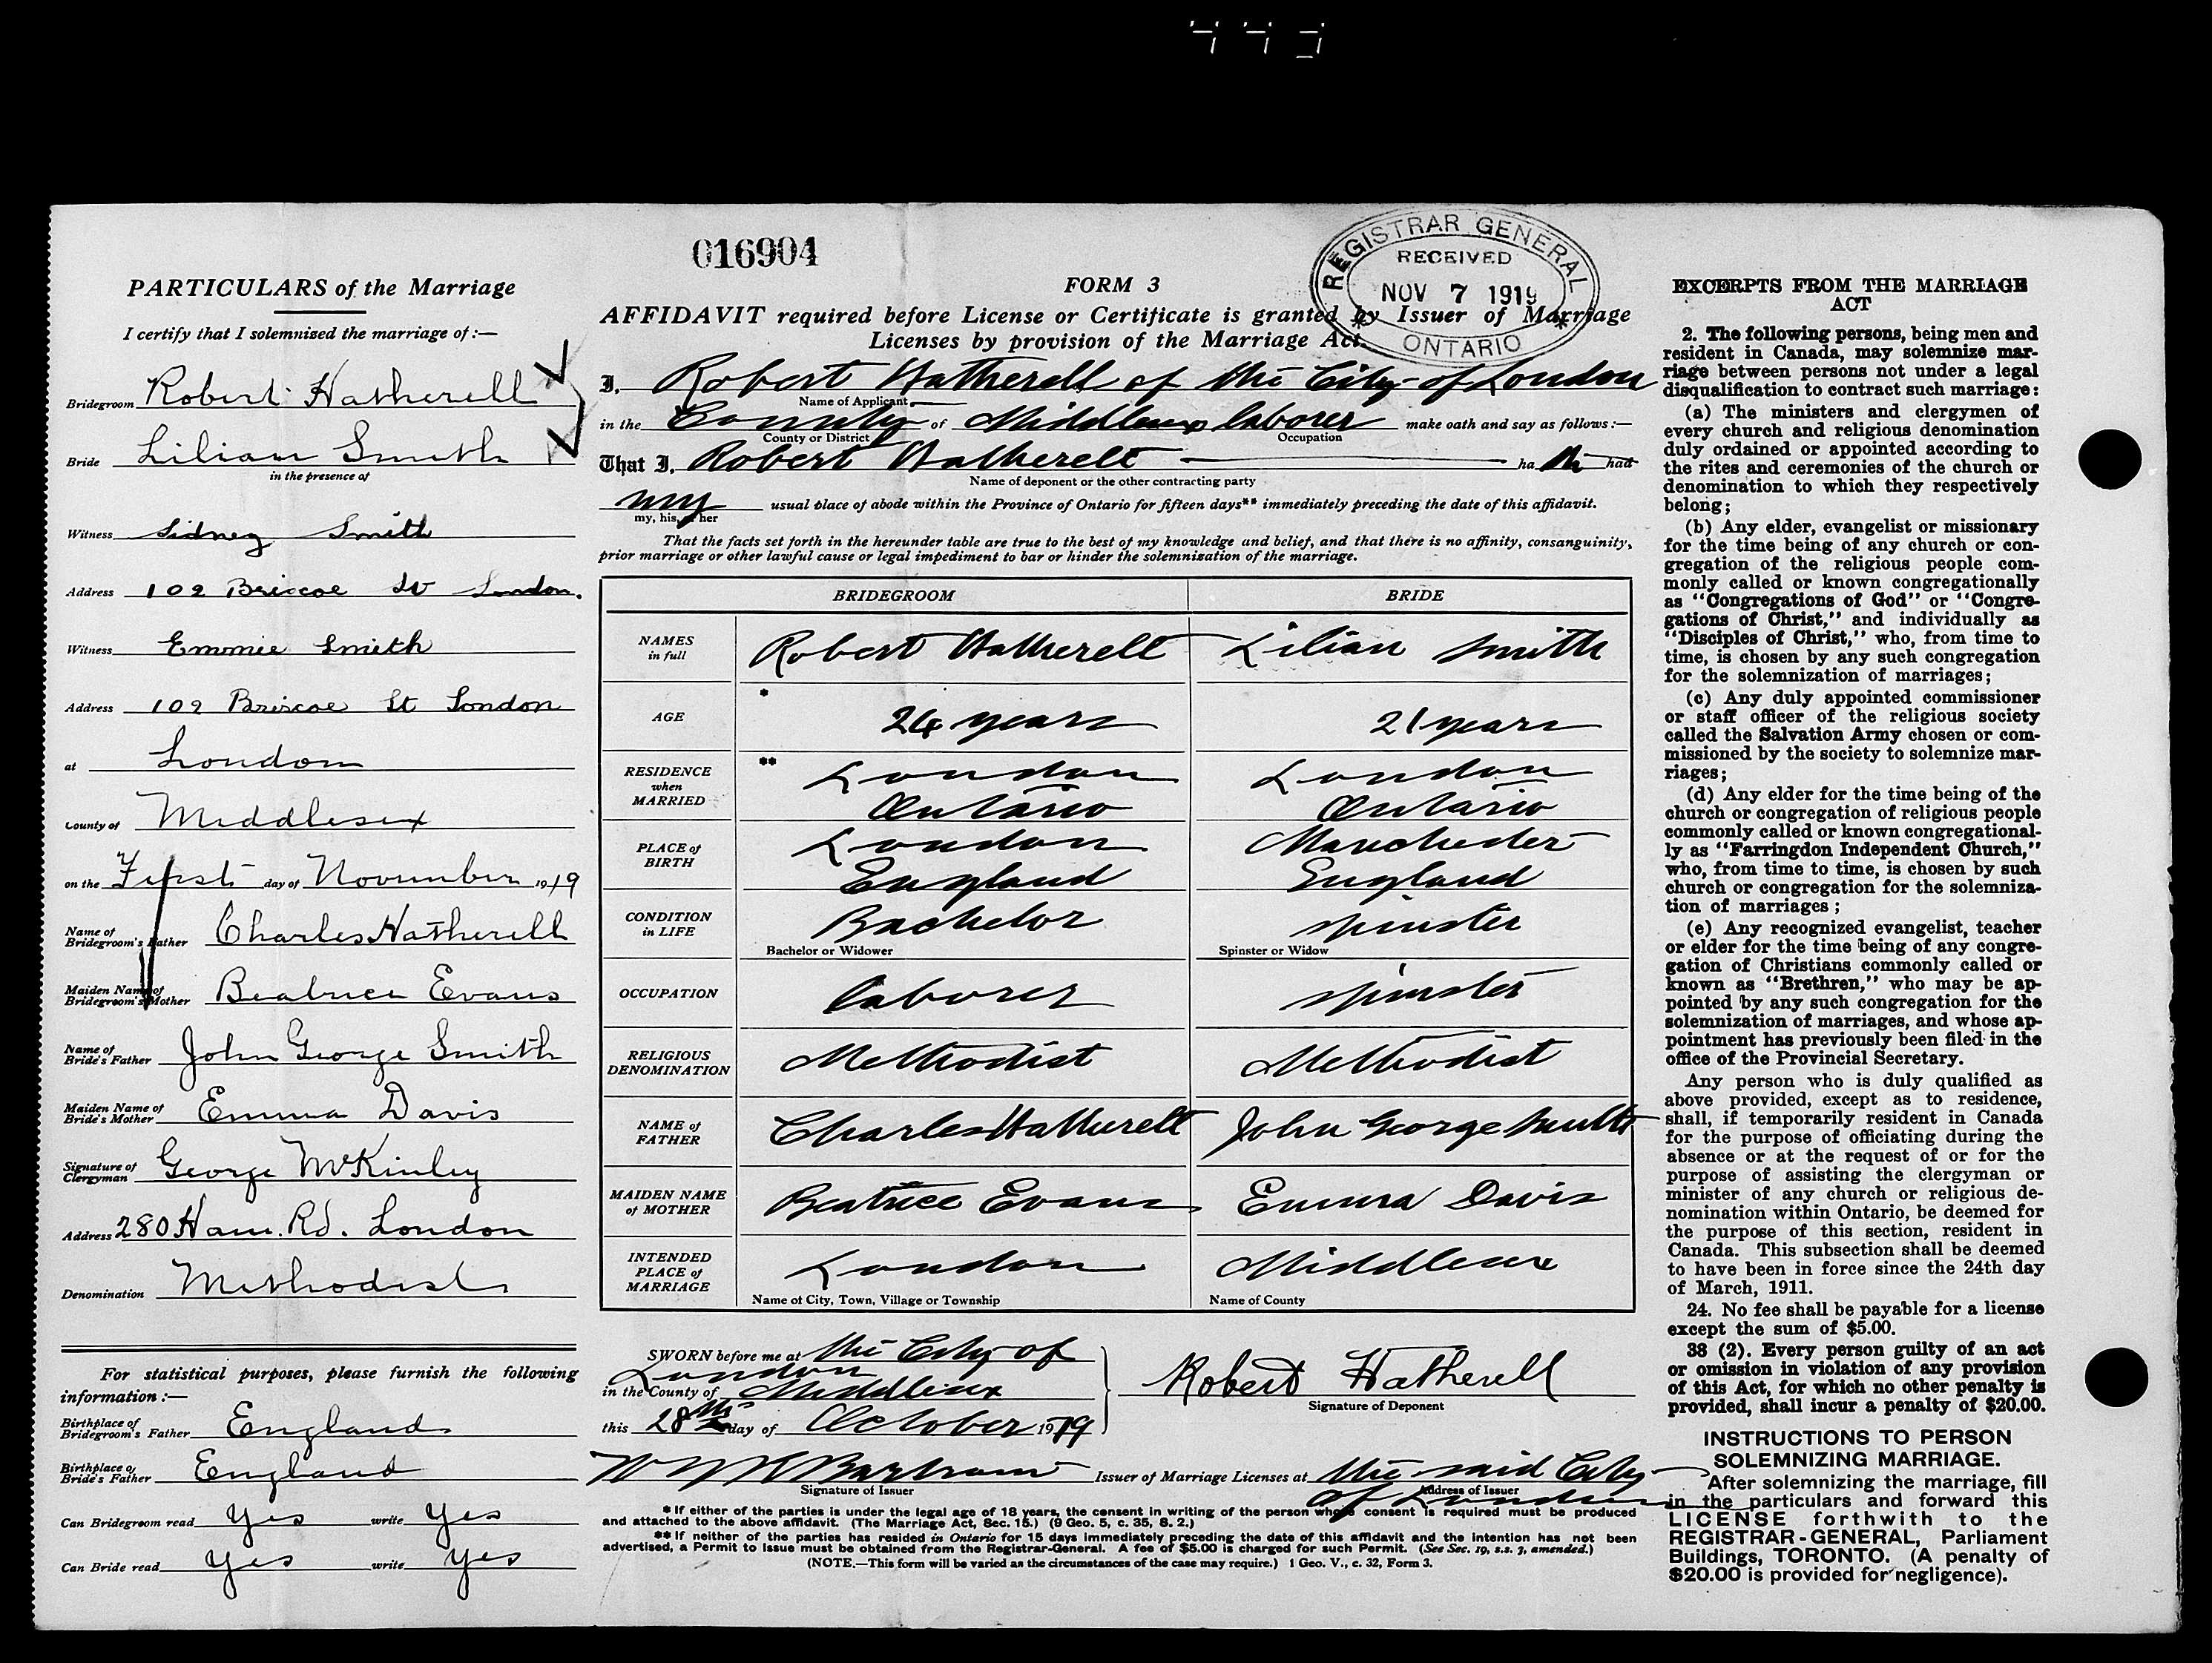 443
016904
REGISTRAR GENERAL
RECEIVED
NOV 7 1919
ONTARIO
PARTICULARS of the Marriage
I certify that I solemnized the marriage of:—
Bridegroom Robert Hatherell
Bride Lilian Smith
in the presence of
Witness Sidney Smith
Address 102 Briscoe St London.
Witness Emmie Smith
Address 102 Briscoe St London
at London
County of Middlesex
on the First day of November 1919
Name of Bridegroom's Father Charles Hatherell
Maiden Name of Bridegroom's Mother Beatrice Evans
Name of Bride's Father John George Smith
Maiden Name of Bride's Mother Emma Davis
Signature of Clergyman George McKinley
Address 280 Ham. Rd. London
Denomination Methodist
For statistical purposes, please furnish the following
information:—
Birthplace of Bridegroom's Father England
Birthplace of Bride's Father England
Can Bridegroom read Yes write Yes
Can Bride read Yes write Yes
FORM 3
AFFIDAVIT required before License or Certificate is granted by Issuer of Marriage
Licenses by provision of the Marriage Act.
I, Robert Hatherell of the City of London
Name of Applicant
in the County of Middlesex laborer make oath and say as follows:—
County or District Occupation
That I, Robert Hatherell ha had
Name of deponent or the other contracting party
my usual place of abode within the Province of Ontario for fifteen days** immediately preceding the date of this affidavit.
my, his, or her
That the facts set forth in the hereunder table are true to the best of my knowledge and belief, and that there is no affinity, consanguinity,
prior marriage or other lawful cause or legal impediment to bar or hinder the solemnization of the marriage.
BRIDEGROOM BRIDE
NAMES in full Robert Hatherell Lilian Smith
AGE * 24 years 21 years
RESIDENCE when MARRIED ** London Ontario London Ontario
PLACE of BIRTH London England Manchester England
CONDITION in LIFE Bachelor spinster
Bachelor or Widower Spinster or Widow
OCCUPATION laborer spinster
RELIGIOUS DENOMINATION Methodist Methodist
NAME of FATHER Charles Hatherell John George Smith
MAIDEN NAME of MOTHER Beatrice Evans Emma Davis
INTENDED PLACE of MARRIAGE London Middlesex
Name of City, Town, Village or Township Name of County
SWORN before me at the City of
London
in the County of Middlesex
this 28th day of October 1919
Robert Hatherell
Signature of Deponent
Bartram Issuer of Marriage Licenses at the said City
Signature of Issuer Address of Issuer
of London
* If either of the parties is under the legal age of 18 years, the consent in writing of the person whose consent is required must be produced
and attached to the above affidavit. (The Marriage Act, Sec. 15.) (9 Geo. 5, c. 35, S. 2.)
** If neither of the parties has resided in Ontario for 15 days immediately preceding the date of this affidavit and the intention has not been
advertised, a Permit to Issue must be obtained from the Registrar-General. A fee of $5.00 is charged for such Permit. (See Sec. 19, s.s. 3, amended.)
(NOTE.—This form will be varied as the circumstances of the case may require.) 1 Geo. V., c. 32, Form 3.
EXCERPTS FROM THE MARRIAGE
ACT
2. The following persons, being men and
resident in Canada, may solemnize mar-
riage between persons not under a legal
disqualification to contract such marriage:
(a) The ministers and clergymen of
every church and religious denomination
duly ordained or appointed according to
the rites and ceremonies of the church or
denomination to which they respectively
belong;
(b) Any elder, evangelist or missionary
for the time being of any church or con-
gregation of the religious people com-
monly called or known congregationally
as "Congregations of God" or "Congre-
gations of Christ," and individually as
"Disciples of Christ," who, from time to
time, is chosen by any such congregation
for the solemnization of marriages;
(c) Any duly appointed commissioner
or staff officer of the religious society
called the Salvation Army chosen or com-
missioned by the society to solemnize mar-
riages;
(d) Any elder for the time being of the
church or congregation of religious people
commonly called or known congregational-
ly as "Farringdon Independent Church,"
who, from time to time, is chosen by such
church or congregation for the solemniza-
tion of marriages;
(e) Any recognized evangelist, teacher
or elder for the time being of any congre-
gation of Christians commonly called or
known as "Brethren," who may be ap-
pointed by any such congregation for the
solemnization of marriages, and whose ap-
pointment has previously been filed in the
office of the Provincial Secretary.
Any person who is duly qualified as
above provided, except as to residence,
shall, if temporarily resident in Canada
for the purpose of officiating during the
absence or at the request of or for the
purpose of assisting the clergyman or
minister of any church or religious de-
nomination within Ontario, be deemed for
the purpose of this section, resident in
Canada. This subsection shall be deemed
to have been in force since the 24th day
of March, 1911.
24. No fee shall be payable for a license
except the sum of $5.00.
38 (2). Every person guilty of an act
or omission in violation of any provision
of this Act, for which no other penalty is
provided, shall incur a penalty of $20.00.
INSTRUCTIONS TO PERSON
SOLEMNIZING MARRIAGE.
After solemnizing the marriage, fill
in the particulars and forward this
LICENSE forthwith to the
REGISTRAR-GENERAL, Parliament
Buildings, TORONTO. (A penalty of
$20.00 is provided for negligence).